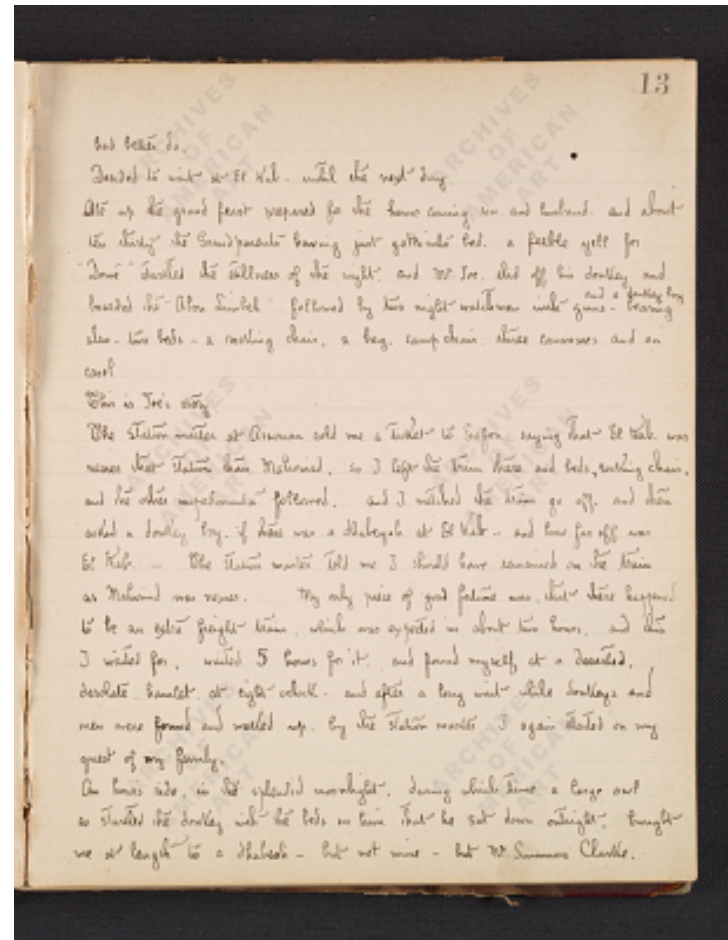 13
had better do.
Decided to wait at El Kab. until the next day
Ate up the grand feast prepared for the home coming son and husband. and about
ten thirty the Grandparents having just gotten into bed. a feeble yell for
"Dowé" startled the stillness of the night. and Mr Joe. slid off his donkey and
boarded the "Abou Simbel" followed by two night watchmen with guns - and a donkey boy bearing
also - two beds - a rocking chair, a bag, camp chair. three canvases and an
easel
This is Joe's story
The Station master at Assouan sold me a ticket to Edfou. saying that El Kab. was
nearer that station than Mahamid, so I left the train there and beds, rocking chair,
and the other impedimenta followed. and I watched the train go off. and then
asked a donkey boy. if there was a dhabeyah at El Kab - and how far off was
El Kab. - The Station master told me I should have remained on the train
as Mahamid was nearer. My only piece of good fortune was. that there happened
to be an extra freight train. which was expected in about two hours. and this
I waited for, waited 5 hours for it. and found myself at a deserted,
desolate hamlet. at eight oclock. and after a long wait while donkeys and
men were found and waked up. by the station master I again started on my
quest of my family.
An hours ride, in the splendid moonlight. during which time a large owl
so startled the donkey with the beds on him that he sat down outright. brought
me at length to a dhabeah - but not mine - but Mr Somers Clarke.
ARCHIVES
OF
AMERICAN
ART